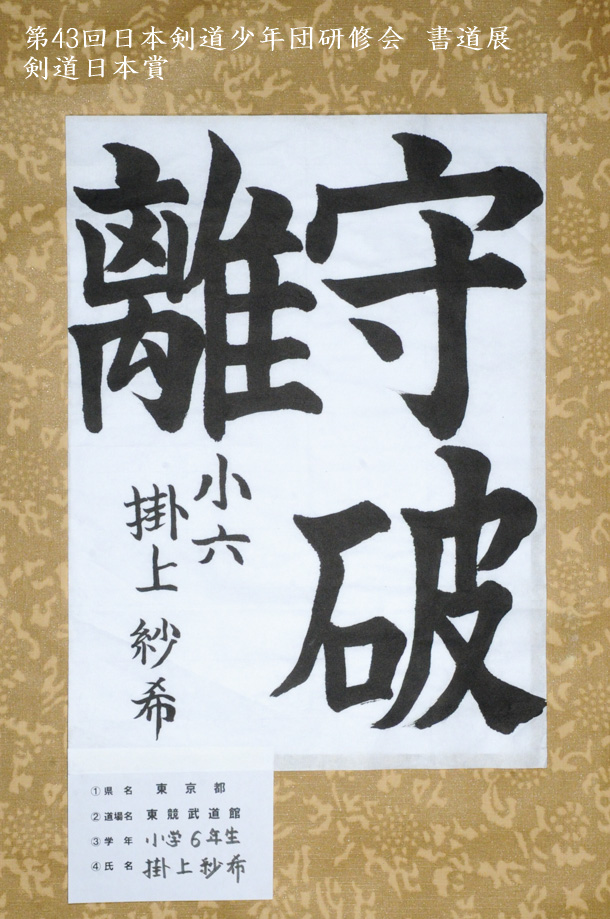 第43回日本剣道少年団研修会 書道展
剣道日本賞
守破
離
小六
掛上紗希
①県名 東京都
②道場名 東競武道館
③学年 小学6年生
④氏名 掛上紗希